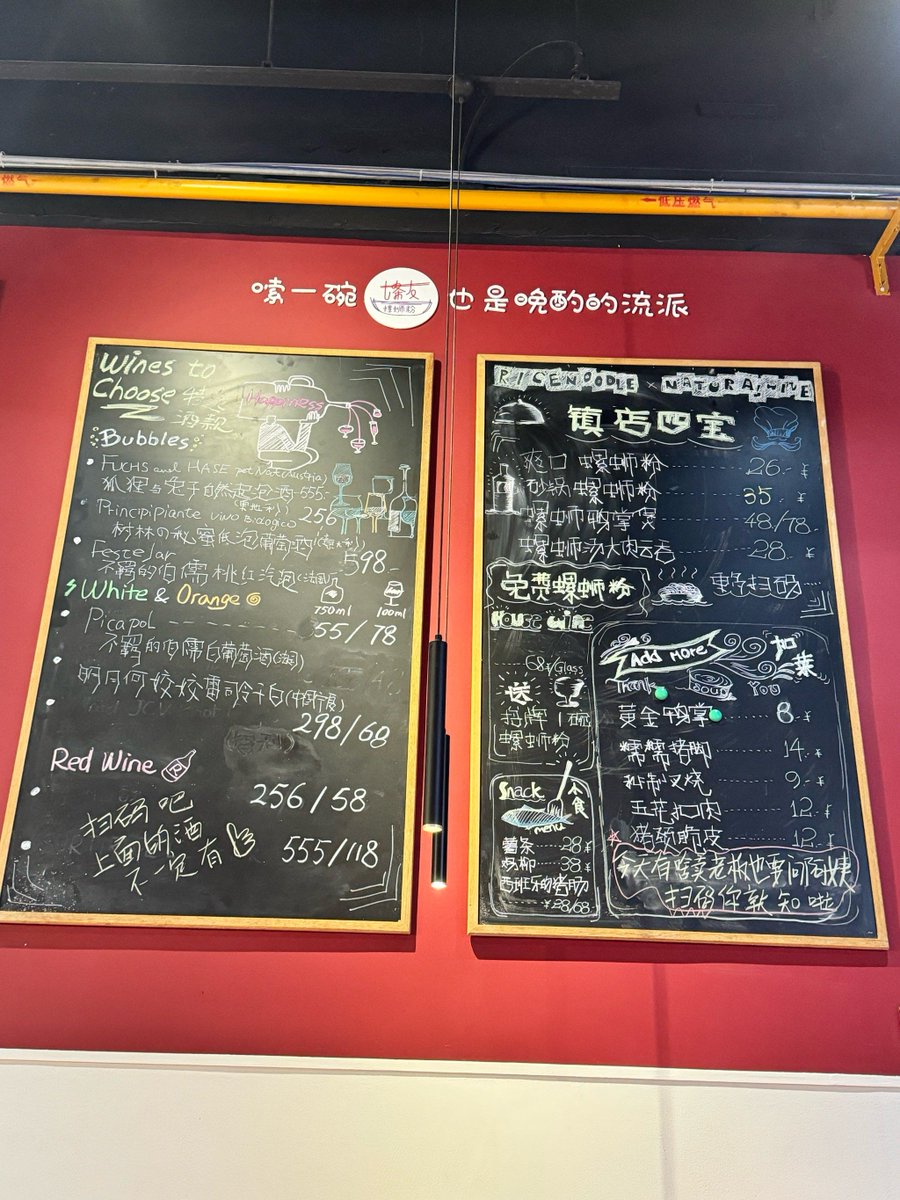 燃气
←低压燃气
嗦一碗
螺蛳粉
也是晚酌的流派
Wines to
Choose 特
酒款
Happiness
Bubbles
FUCHS and HASE pet Nat (Austria)
狐狸与兔子自然起泡酒 555-
(奥地利)
Principipiante vivo Biologico 256
树林の秘密低泡葡萄酒(意大利)
Festejar 598-
不羁的伯儒桃红汽泡(法国)
White & Orange
750ml 100ml
Picapol 55/78
不羁的伯儒白葡萄酒(法国)
明月何皎皎雷司令干白(中国宁夏)
298/68
Red Wine
256/58
扫码吧
上面的酒
不一定有
555/118
RICENOODLE × NATURALWINE
镇店四宝
爽口螺蛳粉 26.¥
砂锅螺蛳粉 35 ¥
螺蛳鸭掌煲 48/78.
螺蛳汤大肉云吞 28.¥
免费螺蛳粉
要扫码
House wine
68¥/Glass
送
招牌1碗
螺蛳粉
Snack 小食
menu
薯条 28¥
鸡柳 38¥
西班牙的猪肠
¥28/68-
Add More 加菜
Thank SOUP YOU
黄金鸭掌 8.¥
糯糯猪脚 14.¥
秘制叉烧 9.¥
五花扣肉 12.¥
猪颈脆皮 12.¥
今天有啥卖老板也要问阿姨
扫码你就知啦